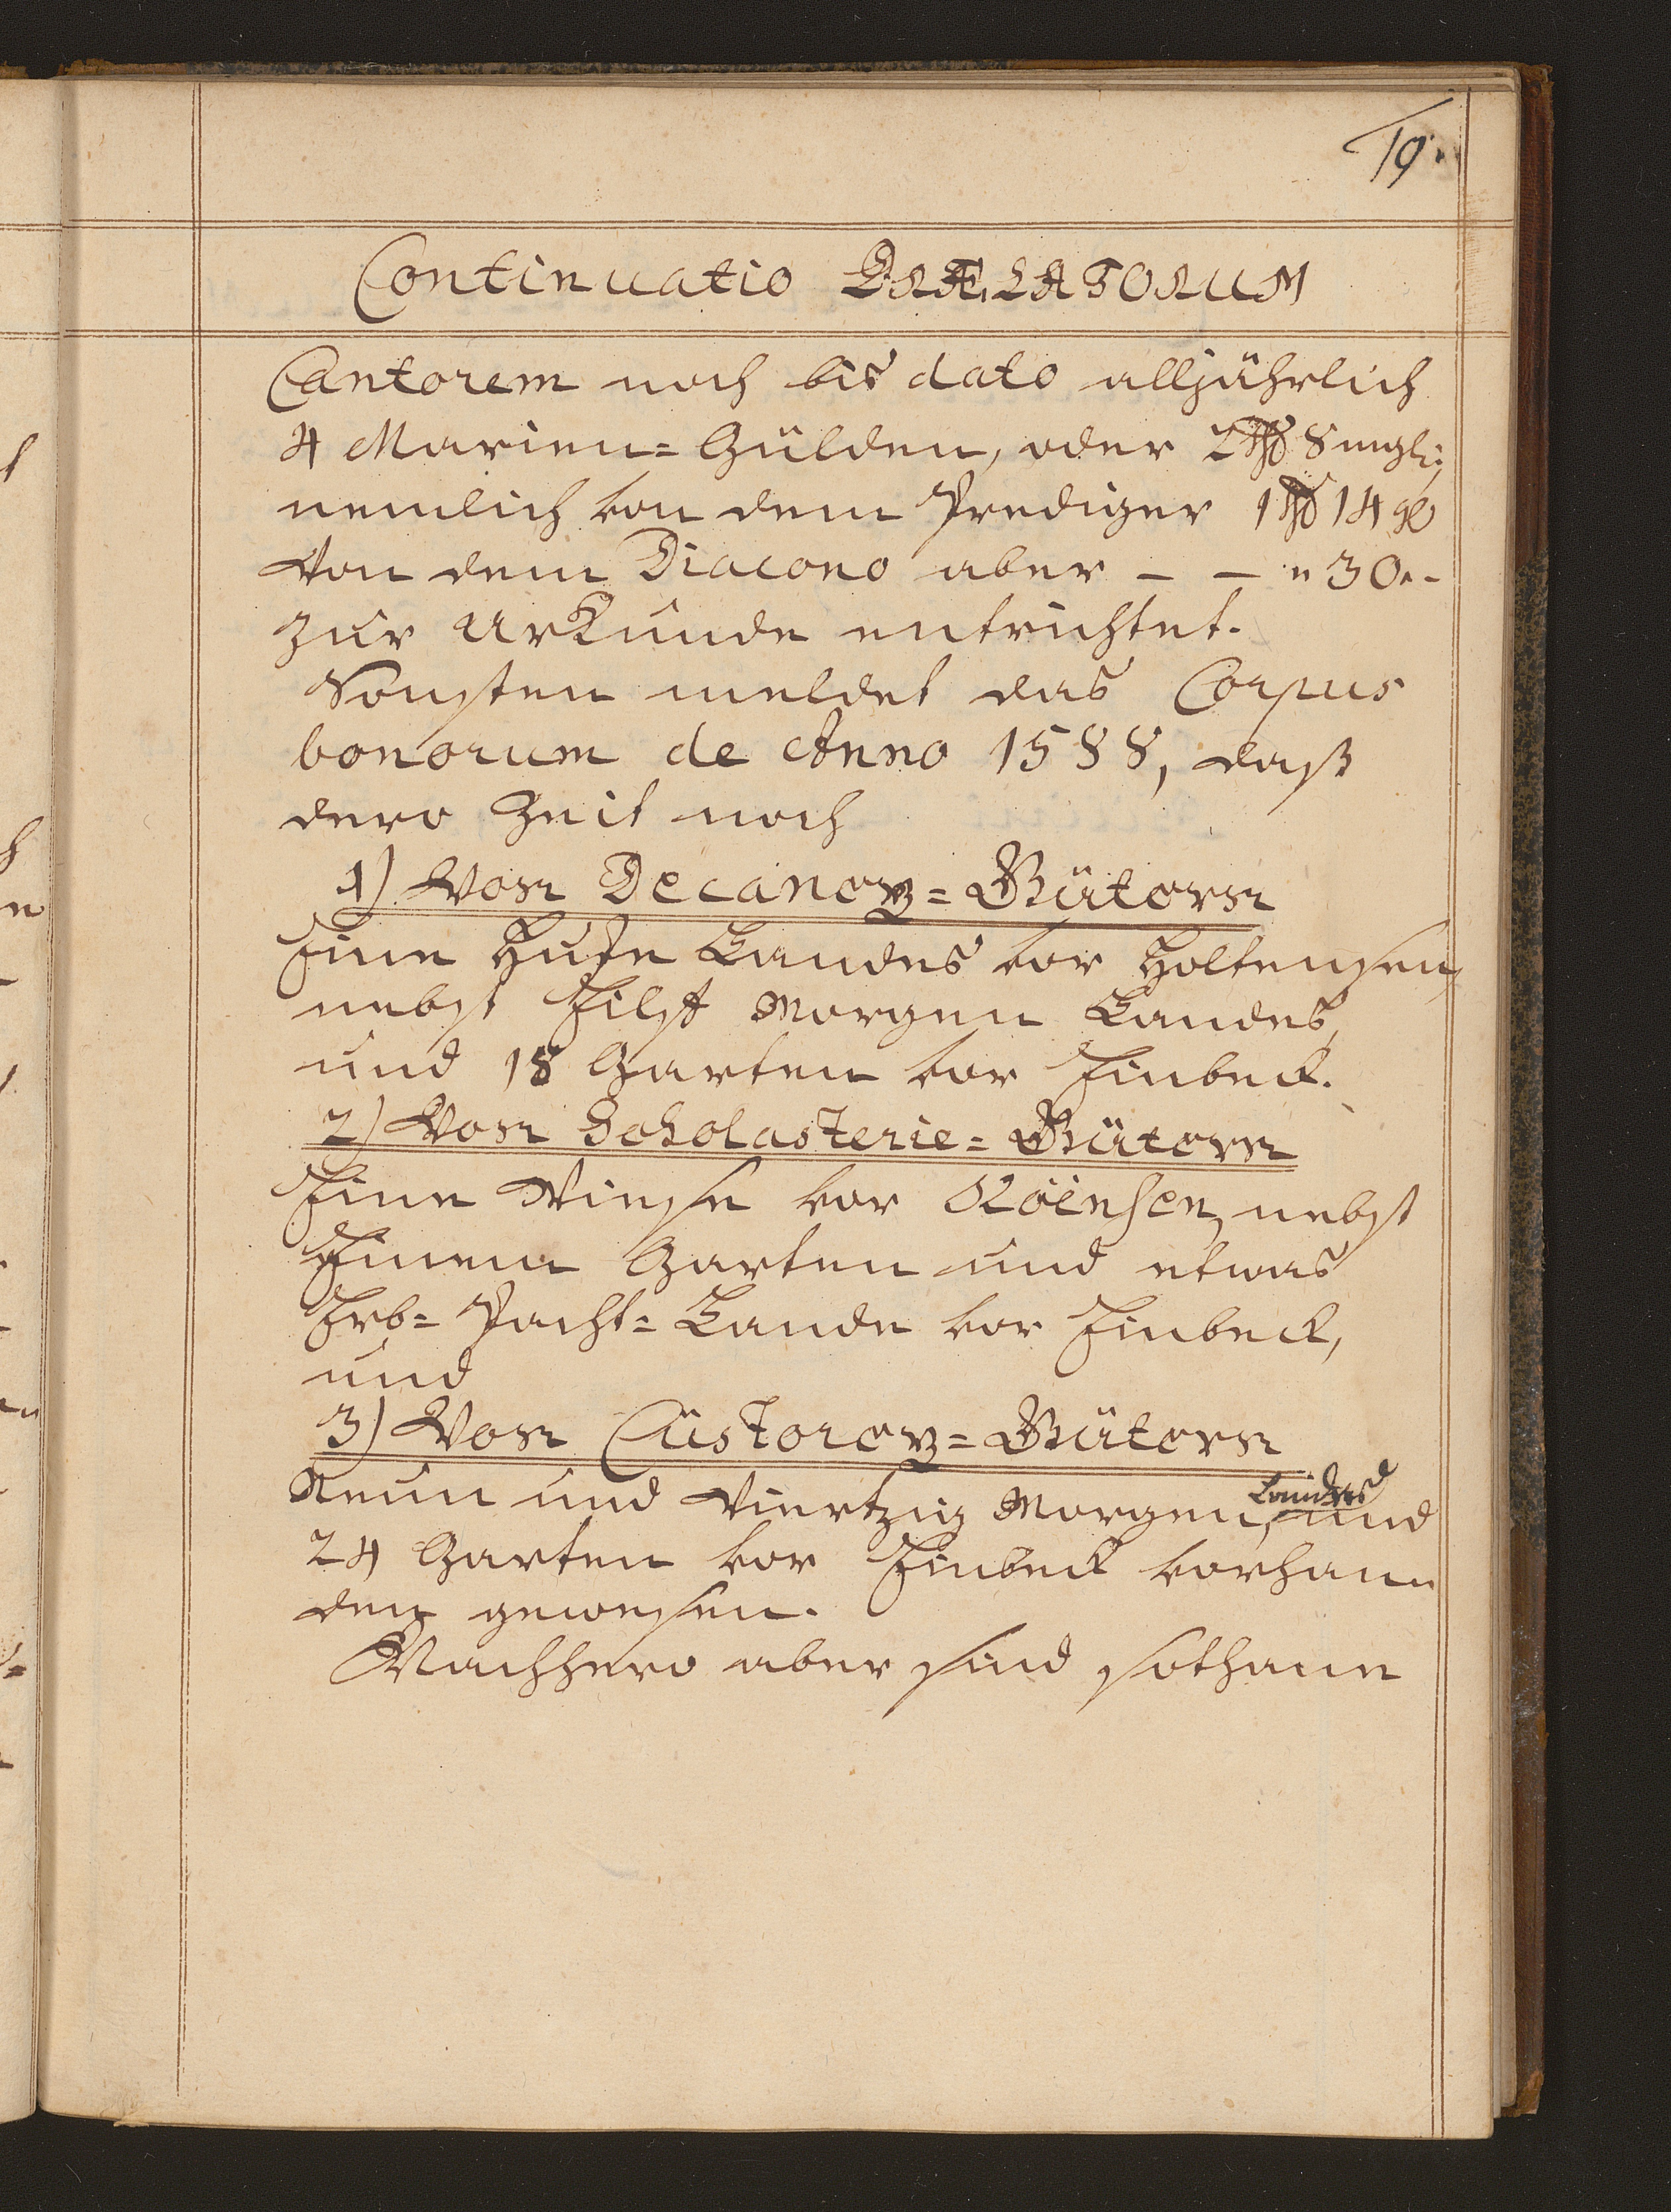 19.
Continuatio PRÆLATORUM
Cantorem noch bis dato alljährlich
4 Marien=Gülden, oder 2 Thlr 8 mgl:
nemlich von dem Prediger 1 Thlr 14 gl
von dem Diacono aber – – " 30. -
zur Urkunde entrichtet.
Sonsten meldet das Corpus
bonorum de Anno 1588, daß
dero Zeit noch
1) Von Decaney=Gütern
Eine Hufe Landes vor Holtensen,
nebst Eilff Morgen Landes,
und 18 Garten vor Einbeck.
2) Von Scholasterie=Gütern
Eine Wiese vor Roinsen, nebst
Einem Garten und etwas
Erb=Pacht=Lande vor Einbeck,
und
3) Von Custorey=Gütern
Landes
Neun und Viertzig Morgen, und
24 Garten vor Einbeck vorhan¬
den gewesen.
Nachhero aber sind sothane